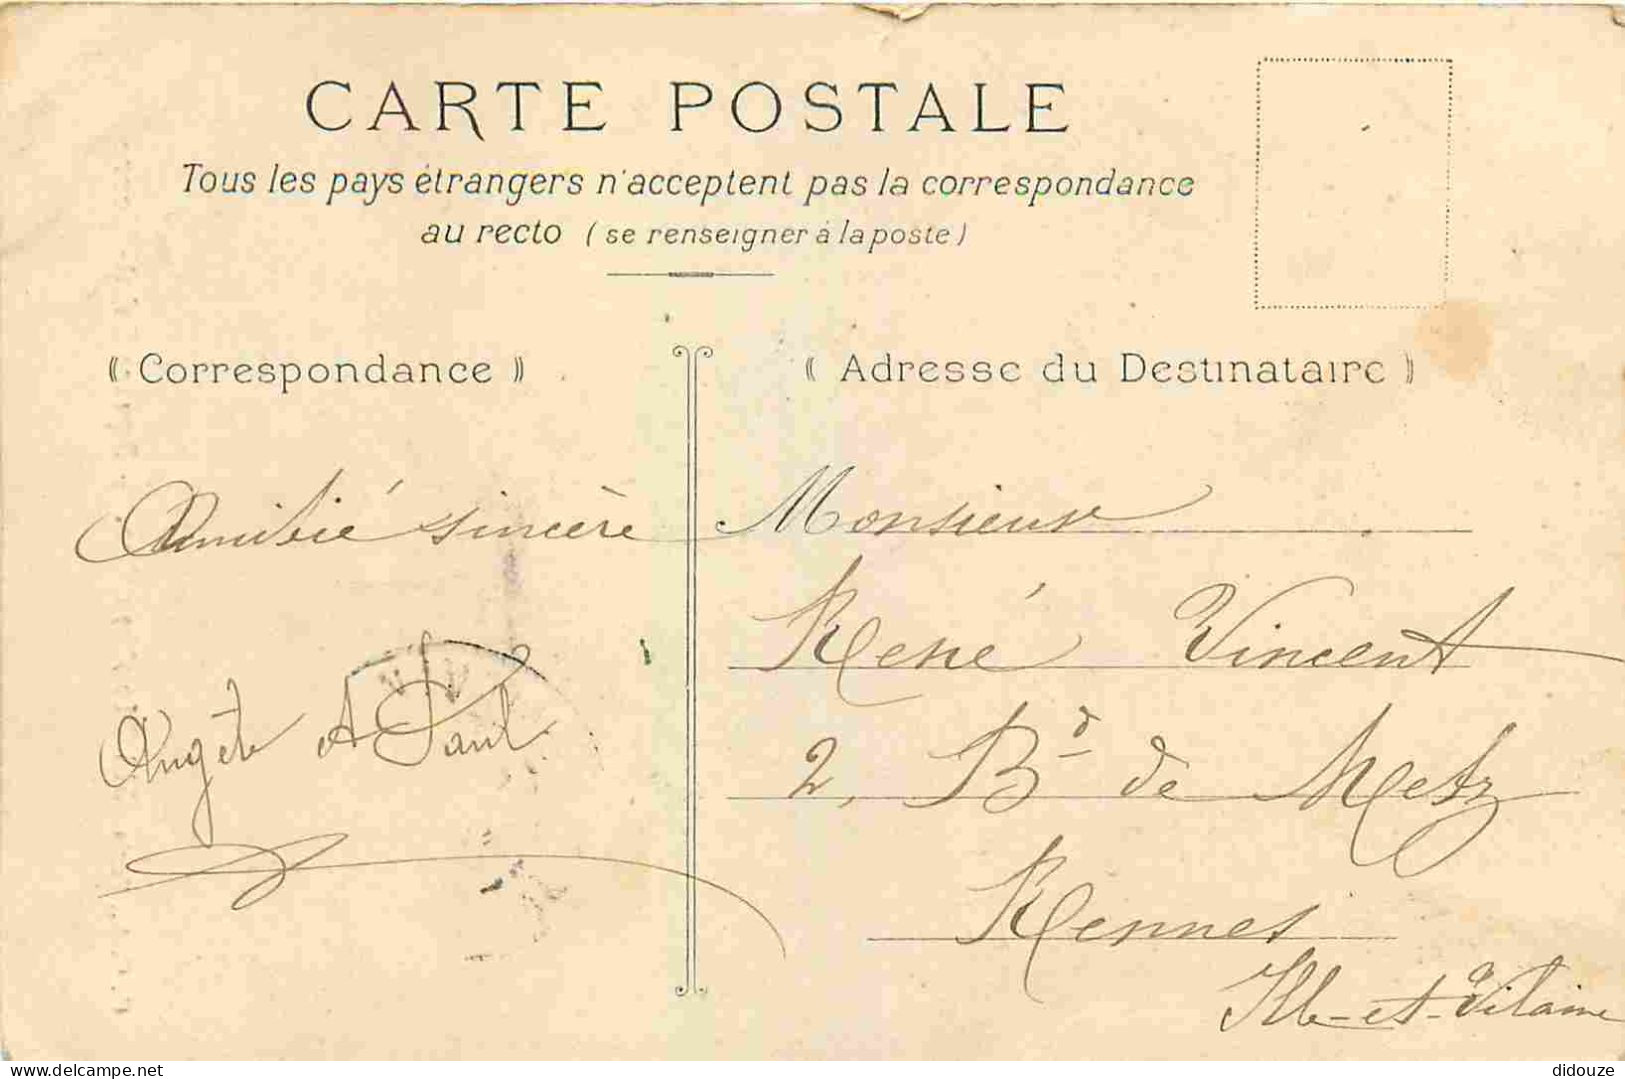 CARTE POSTALE
Tous les pays étrangers n'acceptent pas la correspondance
au recto (se renseigner à la poste)
⸨ Correspondance ⸩
⸨ Adresse du Destinataire ⸩
Amitié sincère
Angèle et Paul
Monsieur
René Vincent
2, Bd de Metz
Rennes
Ille-et-Vilaine
www.delcampe.net
didouze